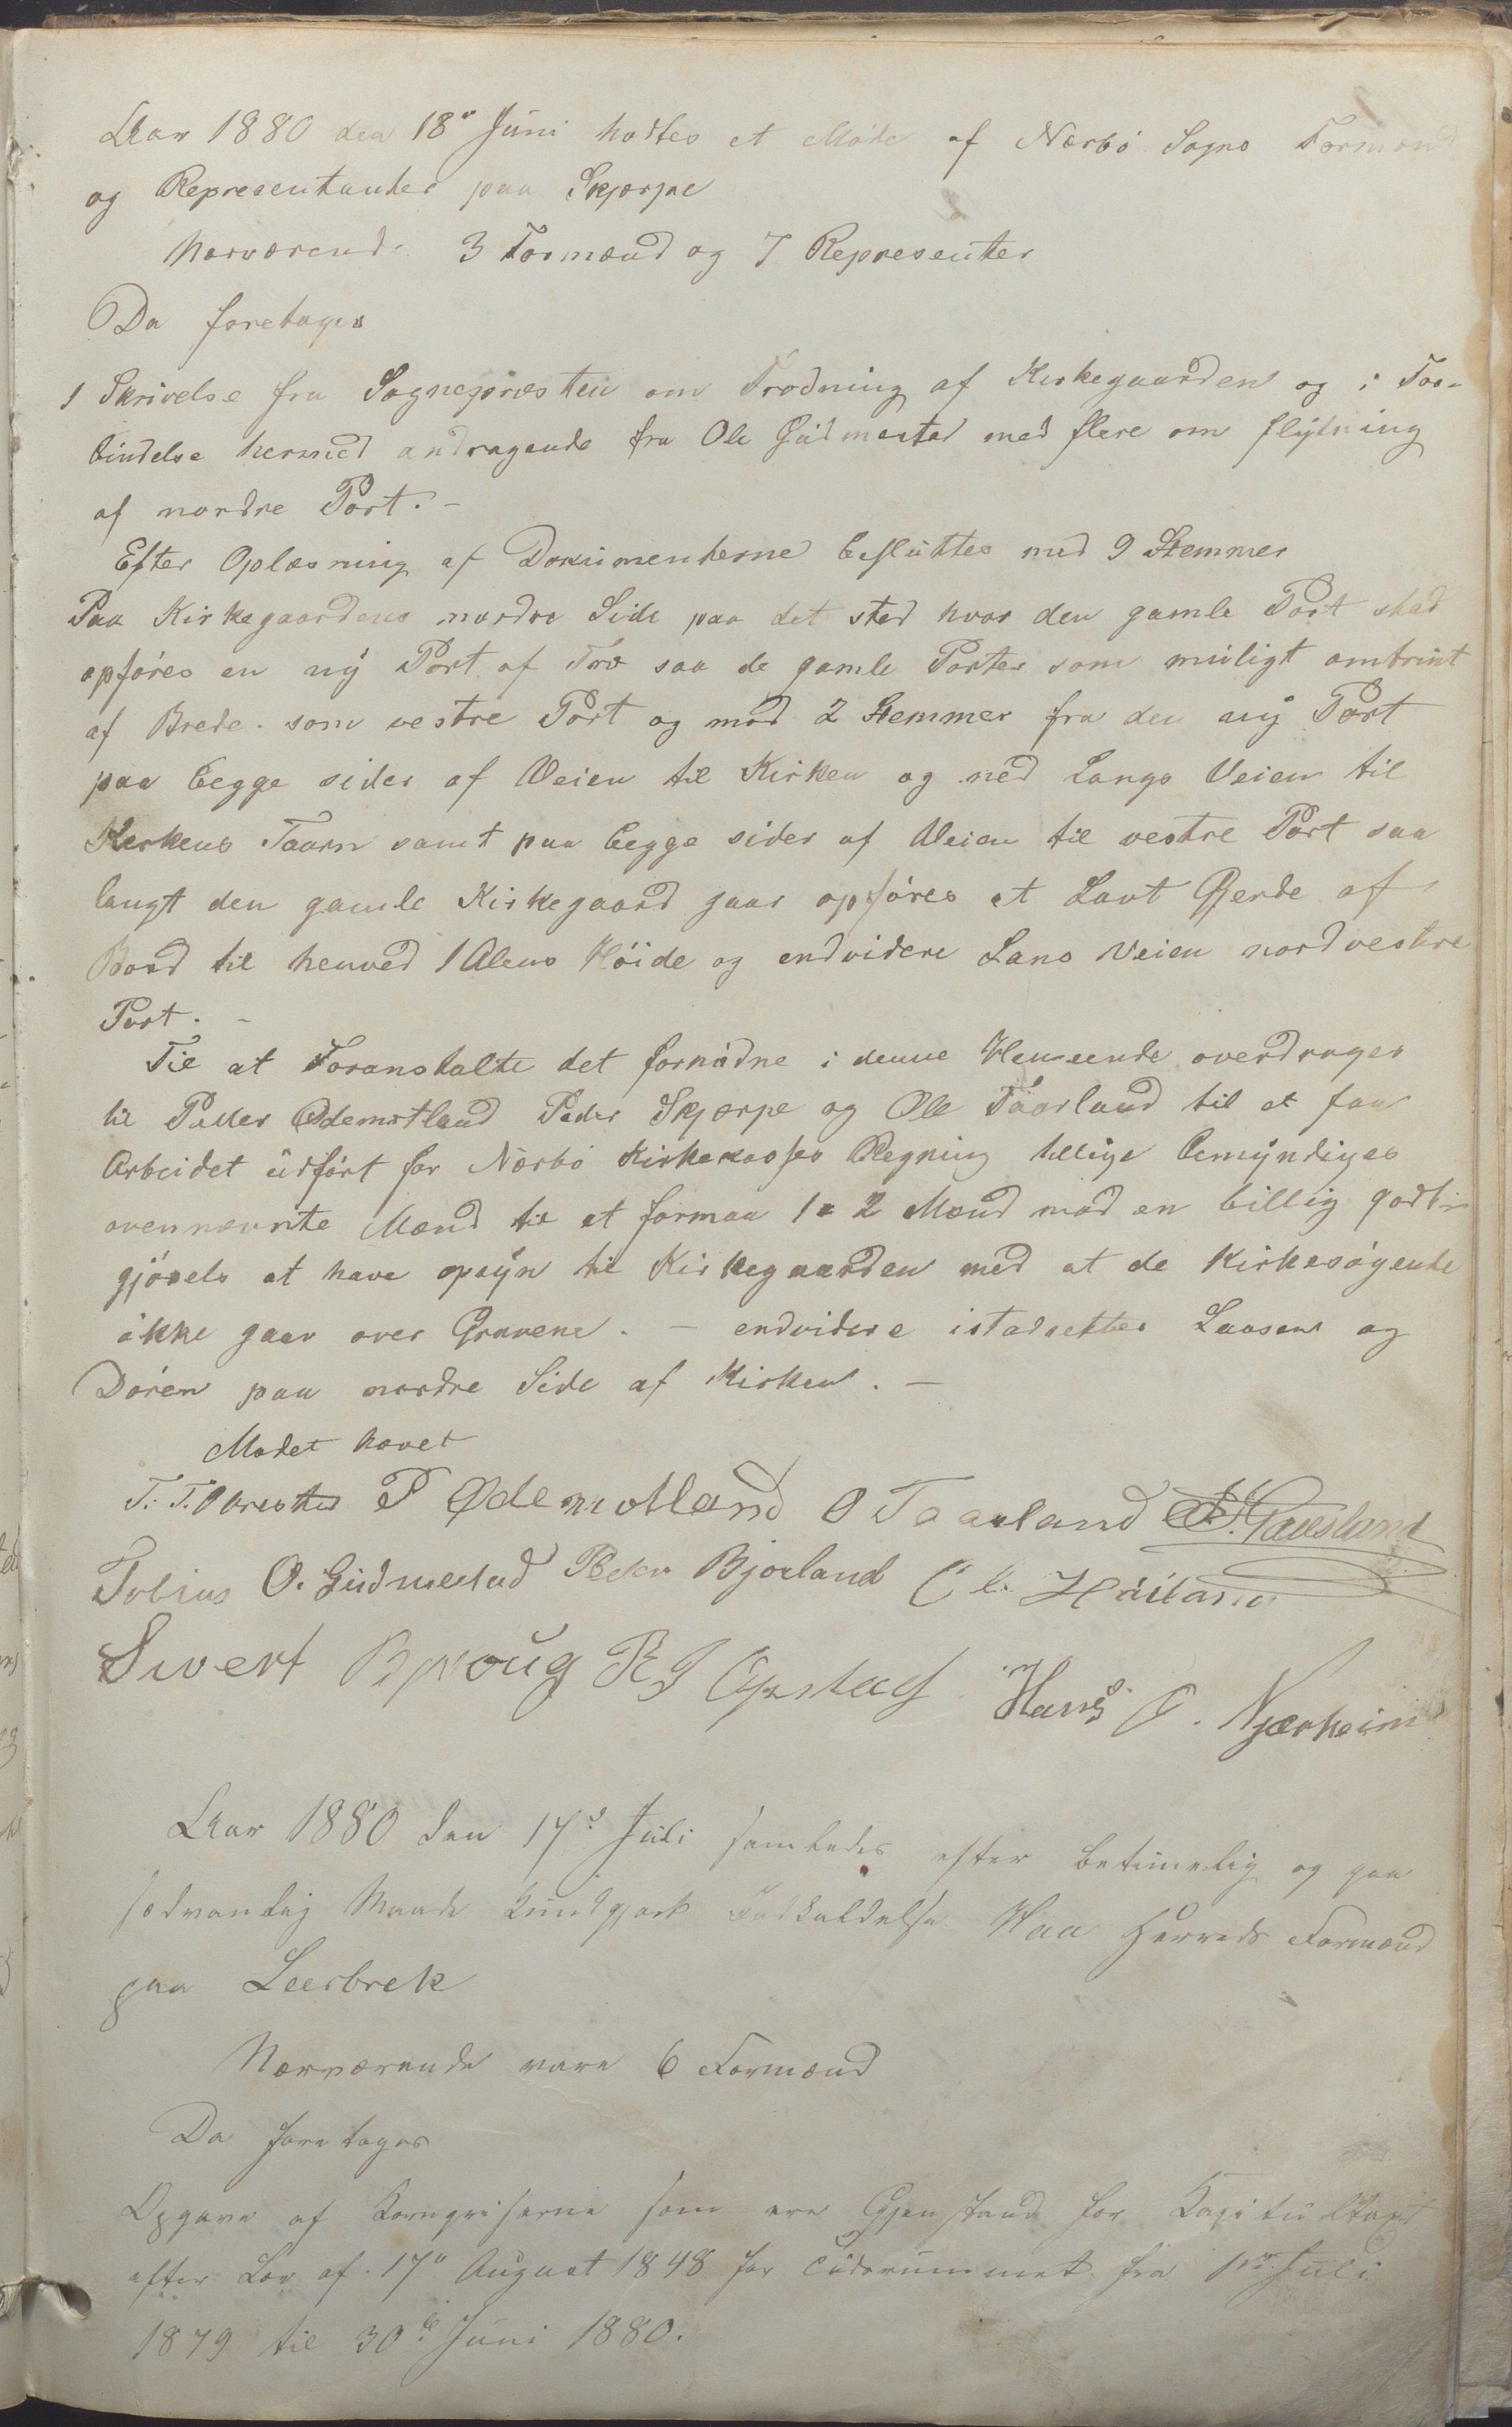 Aar 1880 den 18de Juni hodtes et Møde af Nærbø Sogns Formænd
og Representanter paa Skjærpe
Nærværende 3 Formænd og 7 Representer
Da foretages
1 Skrivelse fra Sognepræsten om Fredning af Kirkegaarden og i For-
bindelse hermed andragende fra Ole Gudmestad med flere om flytning
af nordre Port. -
Efter Oplæsning af Dokumenterne besluttes med 9 Stemmer
Paa Kirkegaardens nordre Side paa det sted hvor den gamle Port stod
opføres en ny Port af Træ saa de gamle Porter som muligt omtrint
af Brede som vestre Port og mod 2 Stemmer fra den ny Port
paa begge sider af Veien til Kirken og ned Langs Veien til
Kirkens Taarn samt paa begge sider af Veien til vestre Port saa
langt den gamle Kirkegaard gaar opføres et Lavt Gjerde af
Bord til henved 1 Alens Høide og endvidere Lans Veien nordvestre
Port. -
Til at Foranstalte det fornødne i denne Henseende overdrages
til Peder Ødemotland Peder Skjærpe og Ole Taarland til at faa
Arbeidet udført for Nærbø Kirkekasses Regning tillige bemyndiges
ovennævnte Mænd til at formaa 1 a 2 Mænd mod en billig godt-
gjørels at have opsyn til Kirkegaarden med at de Kirkesøgende
ikke gaar over Gravene. - endvidere istadsettes Laasen og
Døren paa nordre Side af Kirken. -
Mødet hævet
T. T. Obrestad P Ødemotland O Taarland
Tobias O. Gudmestad Peder Bjorland Håiland
Sivert R J Opstad Hans O. Njærheim
Aar 1880 den 17de Juli samledes efter betimelig og paa
sædvanlig Maade Kundgjort Indkaldelse Haa Herreds Formænd
paa Leerbrek
Nærværende vare 6 Formænd
Da foretages
Opgave af Kornpriserne som ere Gjenstand for Kapitultaxt
efter Lov af 17de August 1848 for Tidsrummet fra 1ste Juli
1879 til 30de Juni 1880.